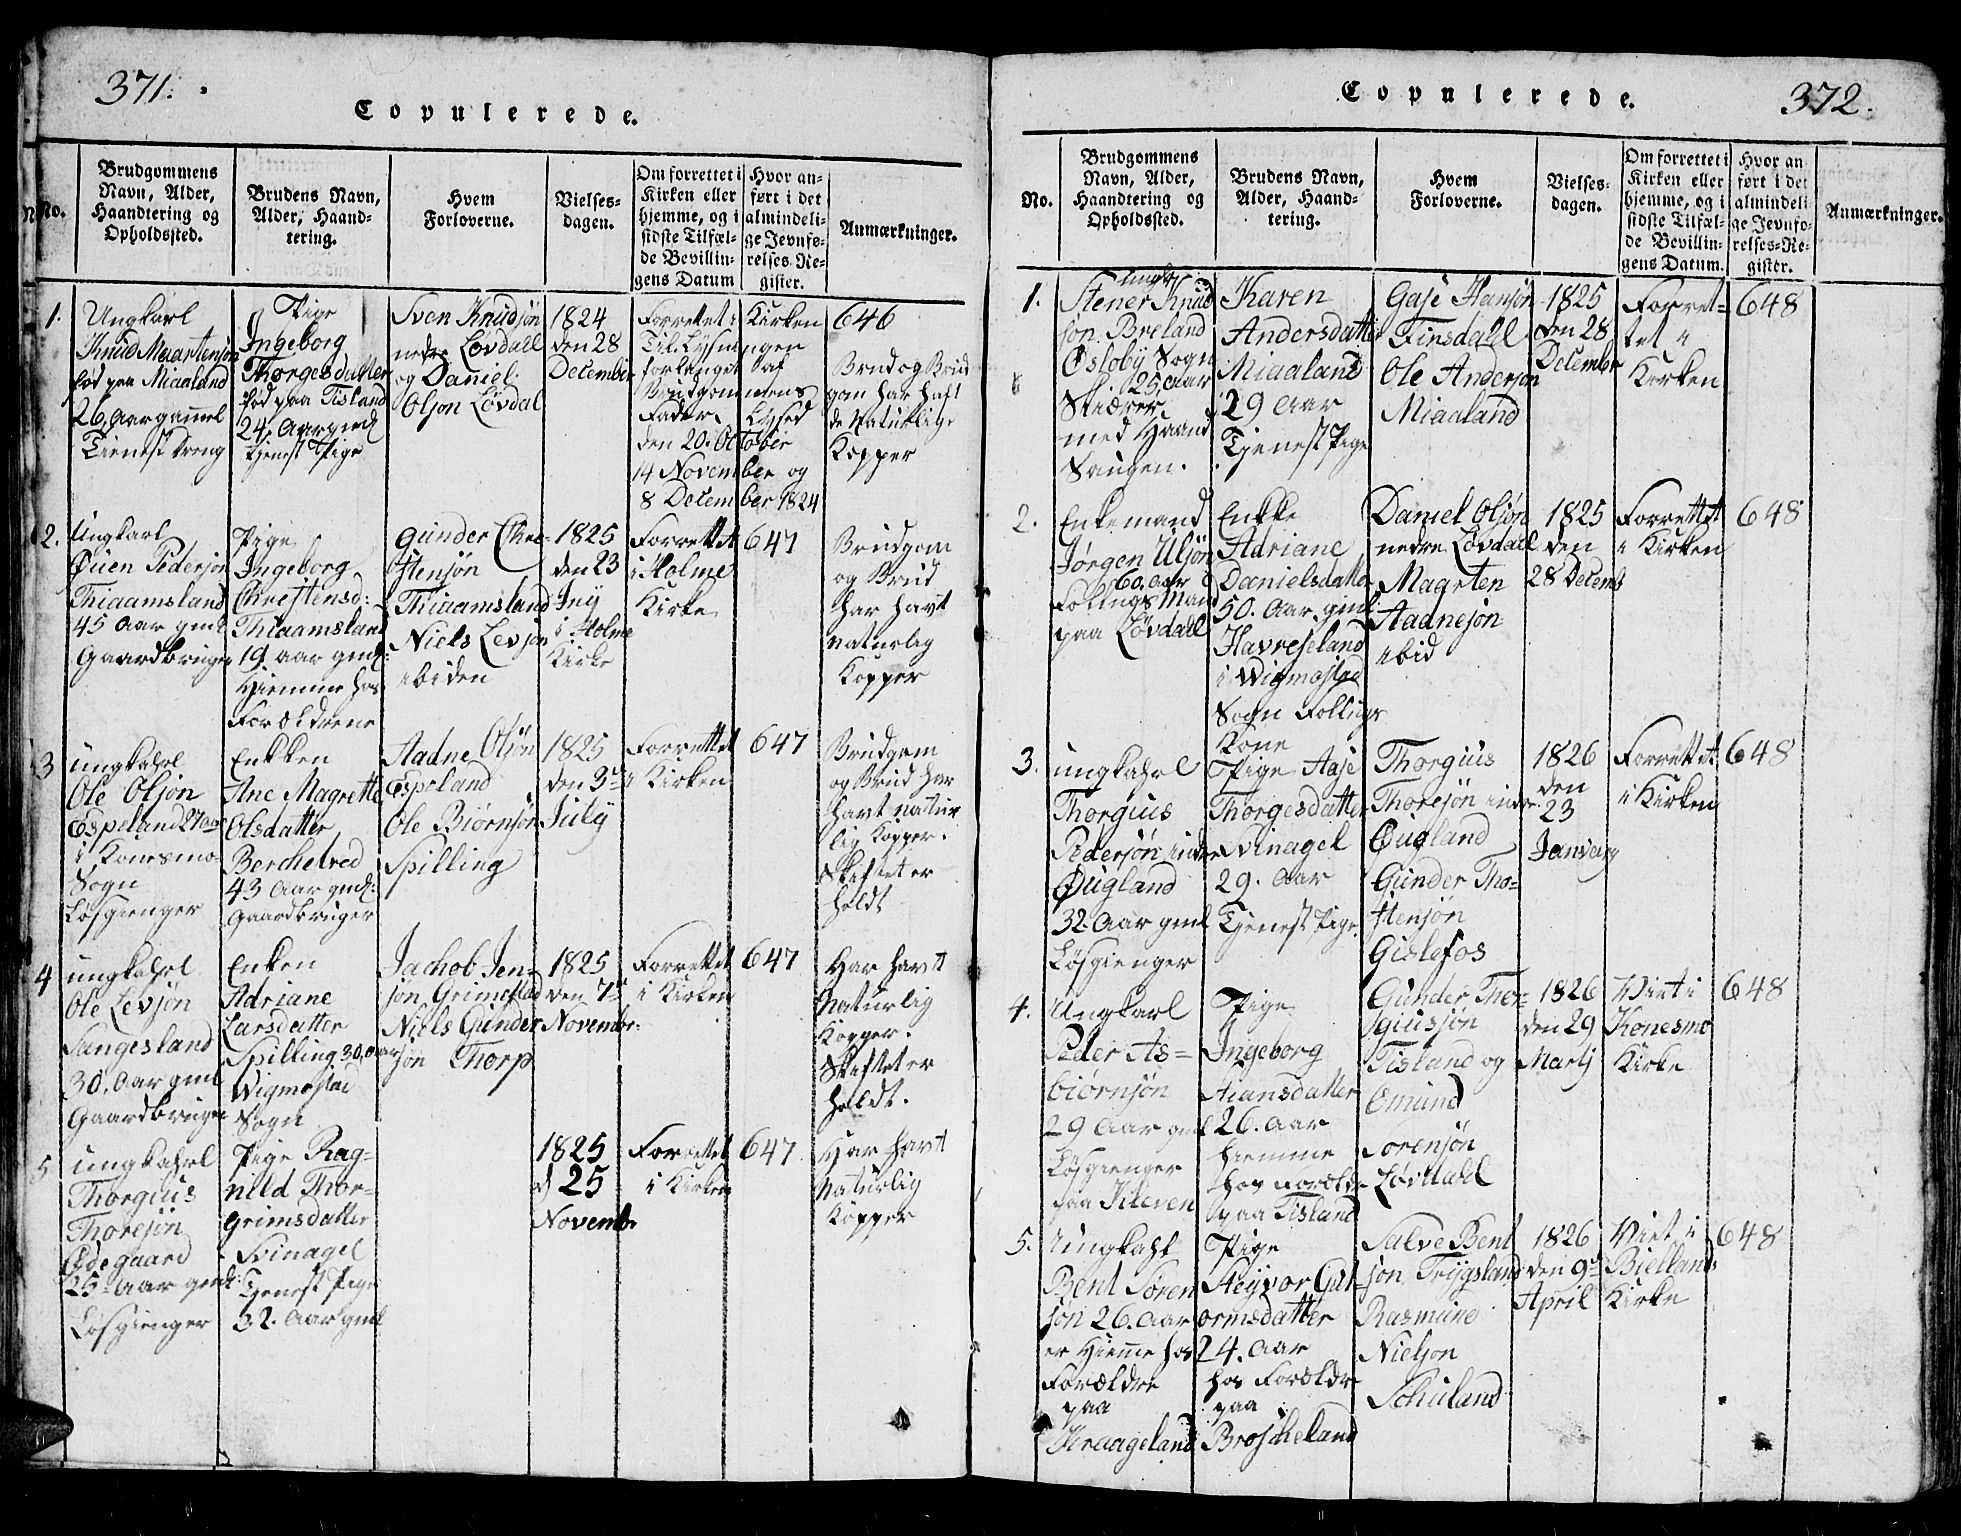 371.
Copulerede.
No.
Brudgommens
Navn, Alder,
Haandtering og
Opholdssted.
Brudens Navn,
Alder, Haand-
tering.
Hvem
Forloverne.
Vielses-
dagen.
Om forrettet i
Kirken eller
hjemme, og i
sidste Tilfæl-
de Bevillin-
gens Datum
Hvor an-
ført i det
almindeli-
ge Jevnfø-
relses-Re-
gister.
Anmærkninger.
1.
Ungkarl
Knud Maartensøn
fød paa Miaaland
26, Aar gammel
Tienest Dreng
Pige
Ingeborg
Thorgesdatter
fød paa Tisland
24, Aar gml
Tjenest Pige
Sven Knudsøn
nedre Løvdall
og Daniel
Olson Løvdal
1824
den 28
December
Forrettet i Kirken
Til Lysningen
forlanget af
Brudgommens
Fader. Lysed
den 20. October
14 November og
8 December 1824
646
Brud og Brud
gom har haft
de Naturlige
Kopper
2.
Ungkarl
Øuen Pedersøn
Thiaamsland
45 Aar gml
Gaardbruger
Pige
Ingeborg
Chrestensd:
Thiaamsland
19 aar gml:
Hiemme hos
Forældrene
Gunder Chre-
stensøn
Thiaamsland
Niels Levsøn
ibiden
1825
den 23
Juny
i Holme
Kirke
Forrettet
i Holme
Kirke
647
Brudgom
og Brud
har havt
Naturlig
Kopper
3
ungkahrl
Ole Olsøn
Espeland 27 aar
i Konesmo
Sogn
Løsgienger
Enkken
Ane Magrette
Olsdatter
Berchelred
43 Aar gml:
Gaardbruger
Aadne Olsøn
Espeland
Ole Biørnsøn
Spilling
1825
den 3de
July
Forrettet
i Kirken
647
Brudgom
og Brud har
havt Natur
lig Kopper.
Skiftet er
holdt
4
ungkahrl
Ole Levsøn
Sangesland
30. Aar gml
Gaardbruger
Enken
Adriane
Larsdatter
Spilling 30, aar
Wigmostad
Sogn
Jachob Jen-
søn Grimestad
Niels Gunder
søn Thorp
1825
den 7de
Novembr:
Forrettet
i Kirken
647
Har havt
Naturlig
Kopper.
Skiftet er
holdt.
5
ungkahrl
Thorgius
Thoresøn
Ødegaard
25 Aar gml:
Løsgienger
Pige Rag-
nild Thor-
Grimsdatter
Svinagel
Tjenest Pige
32. Aar gml
1825
d 25
Novembr
Forrettet
i Kirken
647
Har havt
Naturlig
Kopper
Copulerede.
372.
No.
Brudgommens
Navn, Alder,
Haandtering og
Opholdssted.
Brudens Navn,
Alder, Haand-
tering.
Hvem
Forloverne.
Vielses-
dagen.
Om forrettet i
Kirken eller
hjemme, og i
sidste Tilfæl-
de Bevillin-
gens Datum.
Hvor an
ført i det
almindeli
ge Jevnfø-
relses-Re-
gister.
Anmærkninger.
1.
Stener Knud
søn. Breland
Øslobÿ Sogn
25, Aar
Skiærer
med Haand
Saugen.
Karen
Andersdatter
Miaaland
29 Aar
Tjenest Pige
Gase Hansøn
Finsdall
Ole Andersøn
Miaaland
1825
den 28
December
Forret-
tet i
Kirken
648
2.
Enkemand
Jørgen Ulsøn
60, aar
Follings Mand
paa Løvdall
Enkke
Adriane
Danielsdatter
50. Aar. gml
Havreseland
i Wigmostad
Sogn Follings
Kone
Daniel Olsøn
nedre Løvdall
Maarten
Aadnesøn
ibid
1825
den
28 Decemb
Forrettet
i Kirken
648
3.
ungkahrl
Thorgius
Pedersøn indre
Øugland
32. Aar gml
Løsgienger
Pige Aase
Thorgesdatter
Svinagel
29. Aar
Tjenest Pige
Thorgius
Thoresøn indre
Øugland
Gunder Tho-
stensøn
Gislefos
1826
den
23
January
Forrettet
i Kirken
648
4.
Ungkarl
Peder As-
biørnsøn
29 Aar gml
Løsgienger
paa Kleven
Pige
Ingeborg
Aiansdatter
26. Aar
hiemme
hos Forældre
paa Tisland
Gunder Thor-
giussøn
Tisland og
Omund
Sorensøn
Løvdahl
1826
den 29
Martj
Viet i
Konesmo
Kirke
648
5.
Ungkahl
Bent Søren
søn 26. Aar
er Hiemme hos
Forældre
paa
Kraageland
Pige
Steÿvor Gut-
ormsdatter
24. Aar
hos Forældre
paa
Broscheland
Salve Bent
søn Trÿgsland
Rasmund
Nielson
Schuland
1826
den 9de
April
Viet i
Bielland
Kirke
648